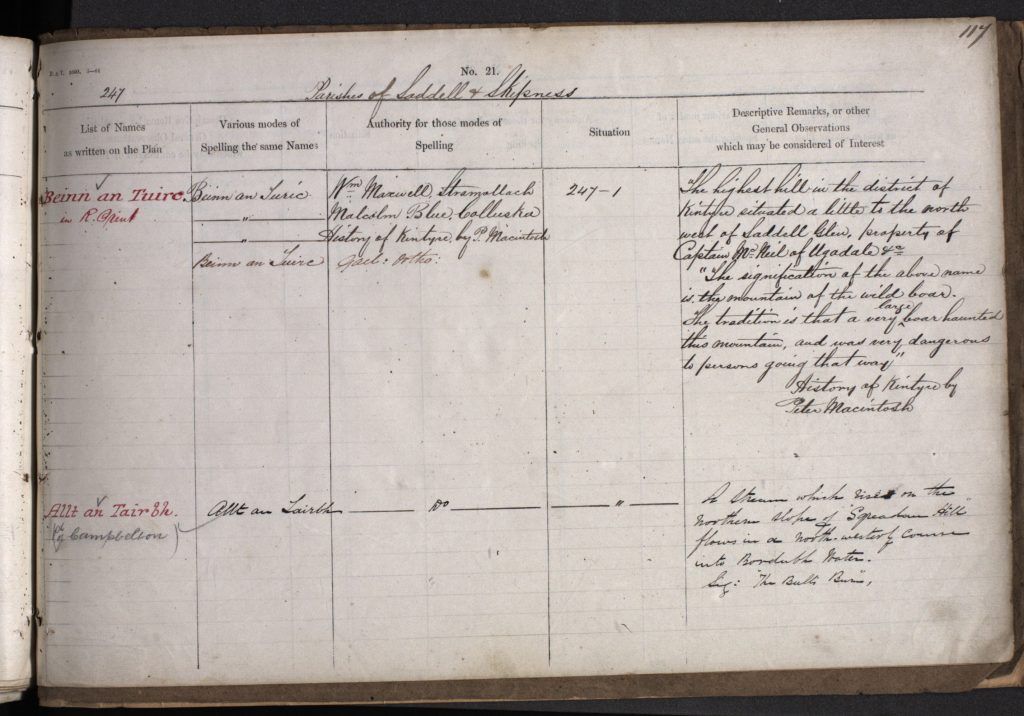 117
No. 21.
247
Parishes of Saddell & Skipness
List of Names
as written on the Plan
Various modes of
Spelling the same Names
Authority for those modes of
Spelling
Situation
Descriptive Remarks, or other
General Observations
which may be considered of Interest
Beinn an Tuirc.
in R.
Beinn an Turic
"
"
Beinn an Tuirc
Wm. Maxwell Stramollach
Malcolm Blue Colluska
History of Kintyre by P. Macintosh
Gael: Ortho.
247-1
The highest hill in the district of
Kintyre situated a little to the north
west of Saddell Glen, property of
Captain McNeil of Ugadale &c
"The signification of the above name
is the mountain of the wild boar.
The tradition is that a very large boar haunted
this mountain, and was very dangerous
to persons going that way"
History of Kintyre by
Peter Macintosh
Allt an Tairbh.
(of Campbelton)
Allt an Tairbh
Do
"
A Stream which rises on the
northern slope of Hill
flows in a north-westerly course
into Bordubh Water.
Sig: The Bulls Burn,